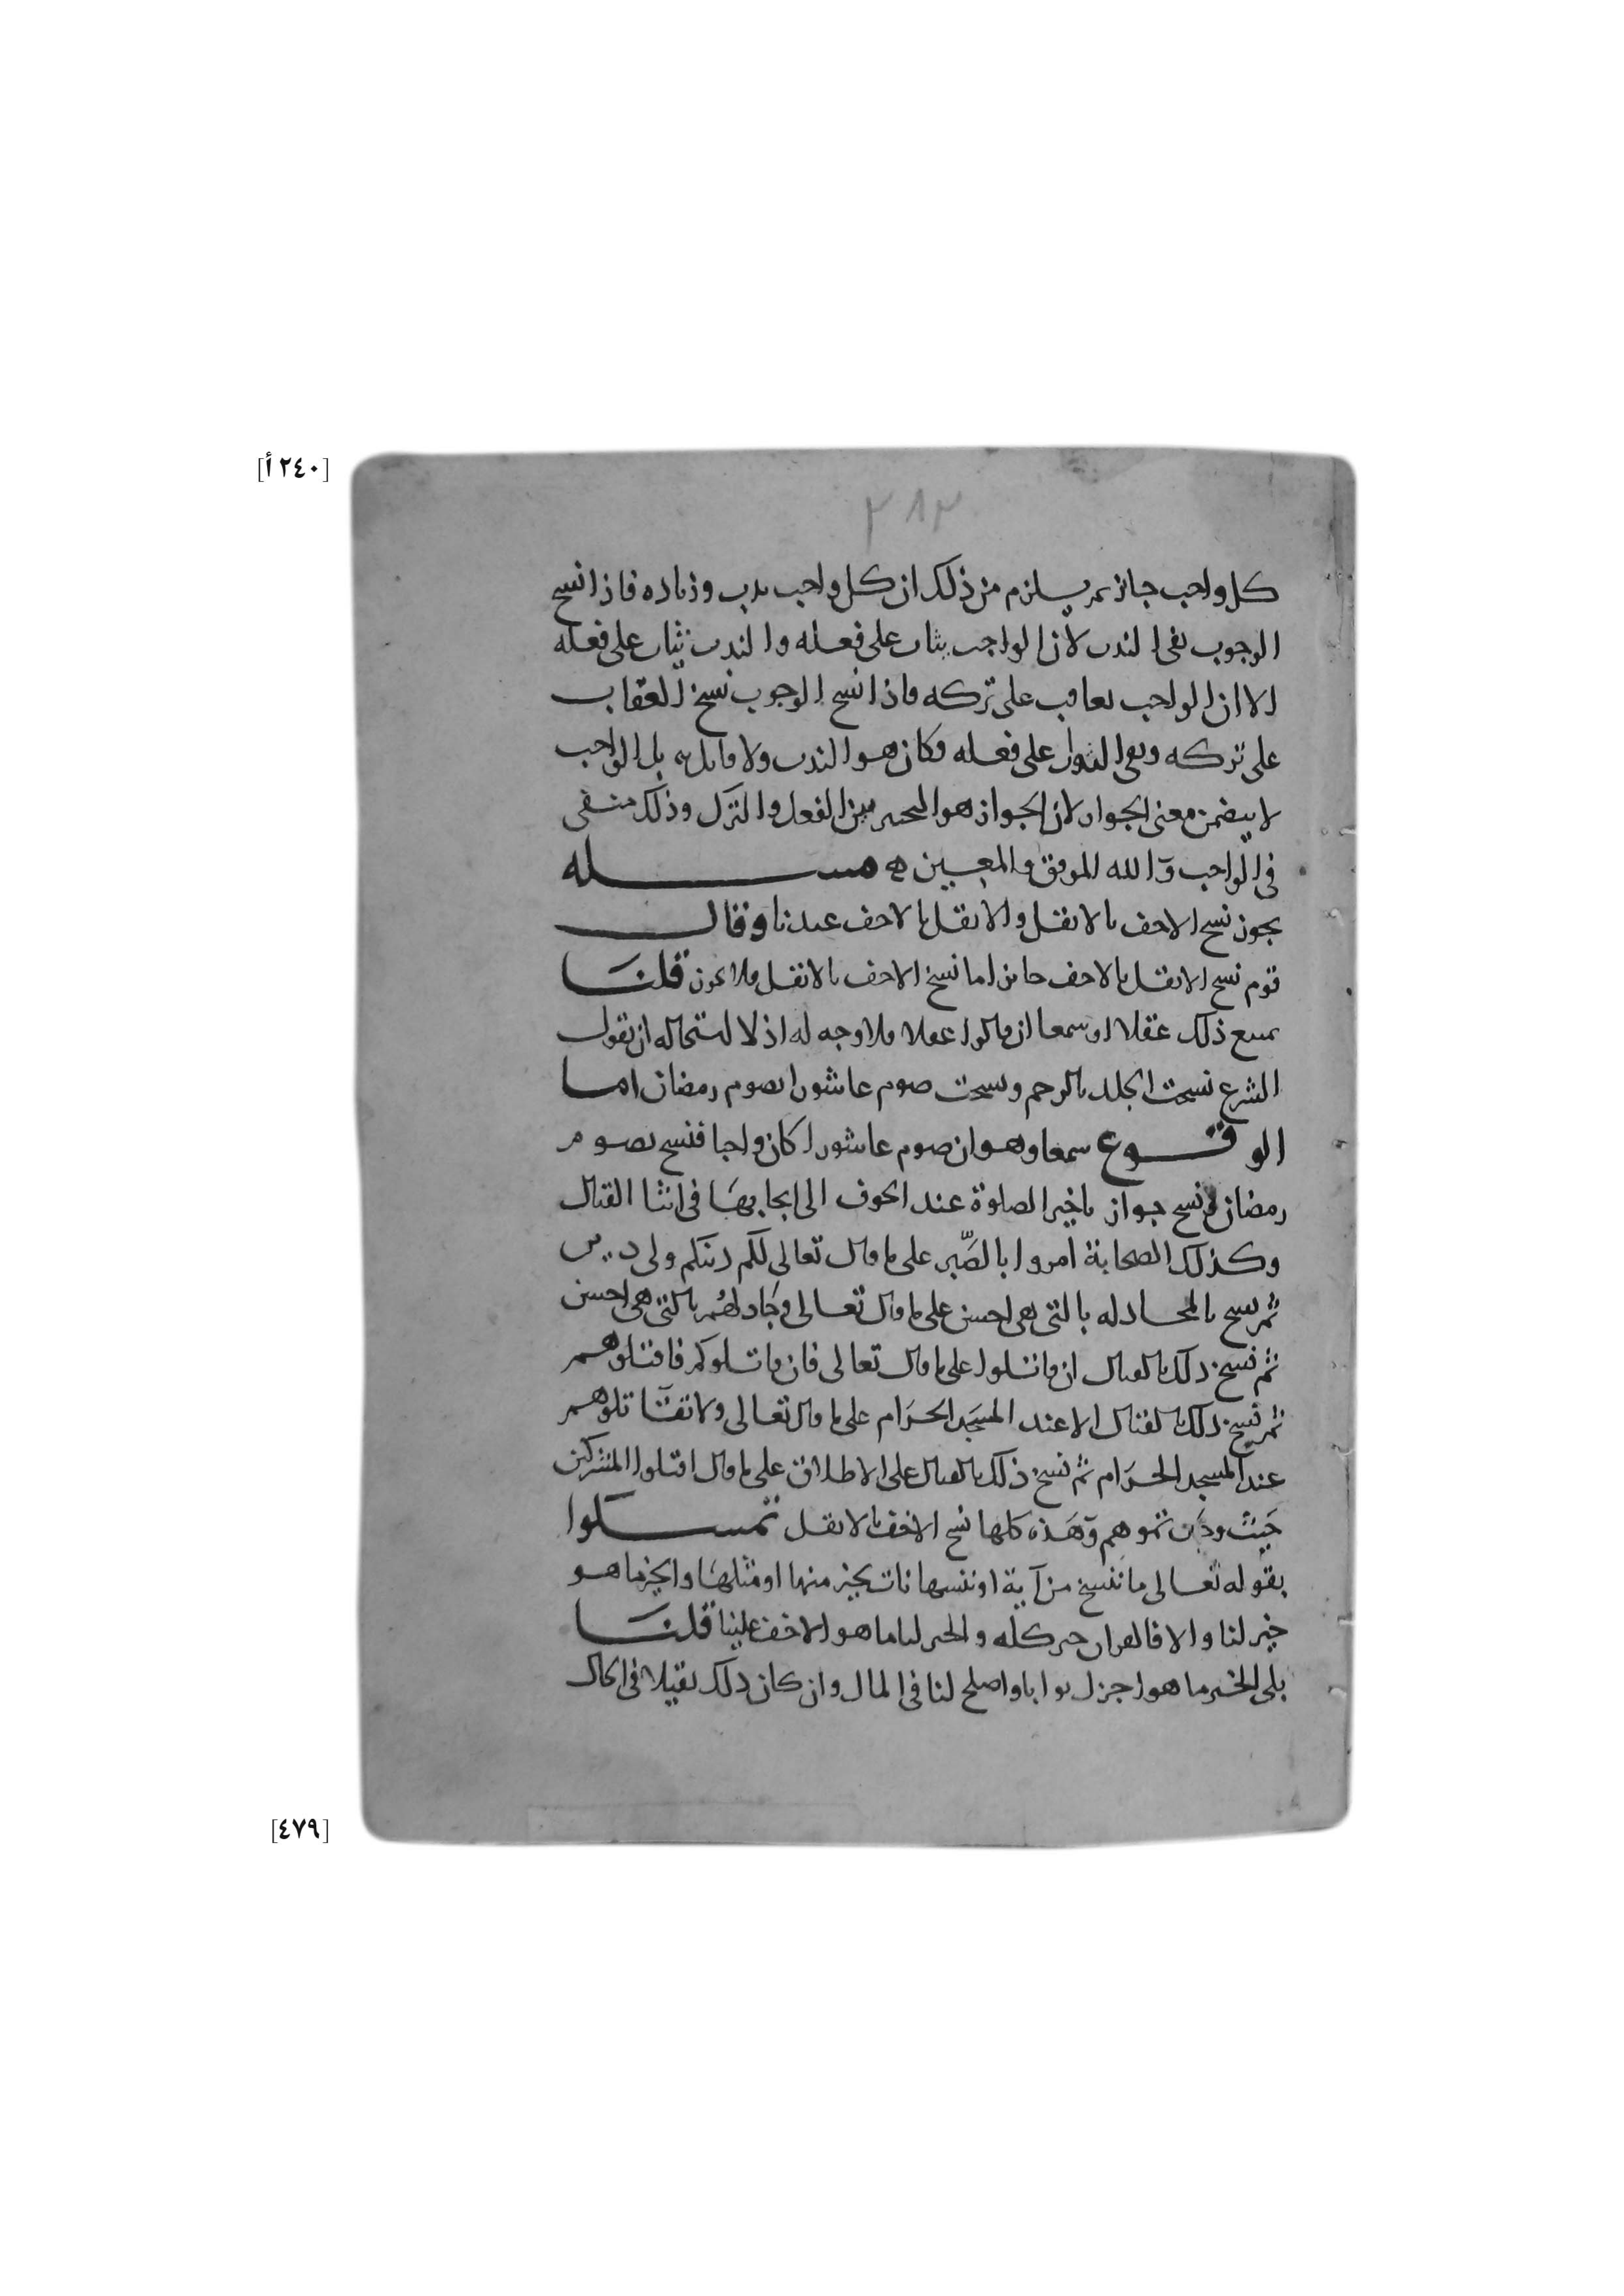 [٢٤٠ أ]
٢٨٣
كل واجب جائز ثم يلزم من ذلك ان كل واجب ندب وزيادة فاذا نسخ
الوجوب بقى الندب لان الواجب يثاب على فعله والندب يثاب على فعله
الا ان الواجب يعاقب على تركه فاذا نسخ الوجوب نسخ العقاب
على تركه وبقى الثواب على فعله فكان هو الندب ولا قائل به بل الواجب
لا يتضمن معنى الجواز لان الجواز هو التخيير بين الفعل والترك وذلك منتفى
فى الواجب والله الموفق والمعين مسله
يجوز نسخ الاخف بالاثقل والاثقل بالاخف عندنا وقال
قوم نسخ الاثقل بالاخف جائز اما نسخ الاخف بالاثقل فلا يجوز قلنا
يمتنع ذلك عقلا او سمعا ان قالوا عقلا فلا وجه له اذ لا استحاله ان يقول
الشرع نسخت الجلد بالرجم ونسخت صوم عاشورا بصوم رمضان اما
الوقوع سمعا وهو ان صوم عاشورا كان واجبا فنسخ بصوم
رمضان ونسخ جواز تاخير الصلوة عند الخوف الى ايجابها فى اثنا القتال
وكذلك الصحابة امروا بالصبر على ما قال تعالى لكم دينكم ولى دين
ثم نسخ بالمجادله بالتى هى احسن على ما قال تعالى وجادلهم بالتى هى احسن
ثم نسخ ذلك بالقتال ان قاتلوا على ما قال تعالى فان قاتلوكم فاقتلوهم
ثم نسخ ذلك بالقتال الا عند المسجد الحرام على ما قال تعالى ولا تقاتلوهم
عند المسجد الحرام ثم نسخ ذلك بالقتال على الاطلاق على ما قال اقتلوا المشركين
حيث وجدتموهم وهذه كلها نسخ الاخف بالاثقل تمسكوا
بقوله تعالى ما ننسخ من آية او ننسها نات بخير منها او مثلها والخير ما هو
خير لنا والا فالقران خير كله والخير لنا ما هو الاخف علينا قلنا
بلى الخير ما هو اجزل ثوابا واصلح لنا فى المال وان كان ذلك ثقيلا فى الحال
[٤٧٩]